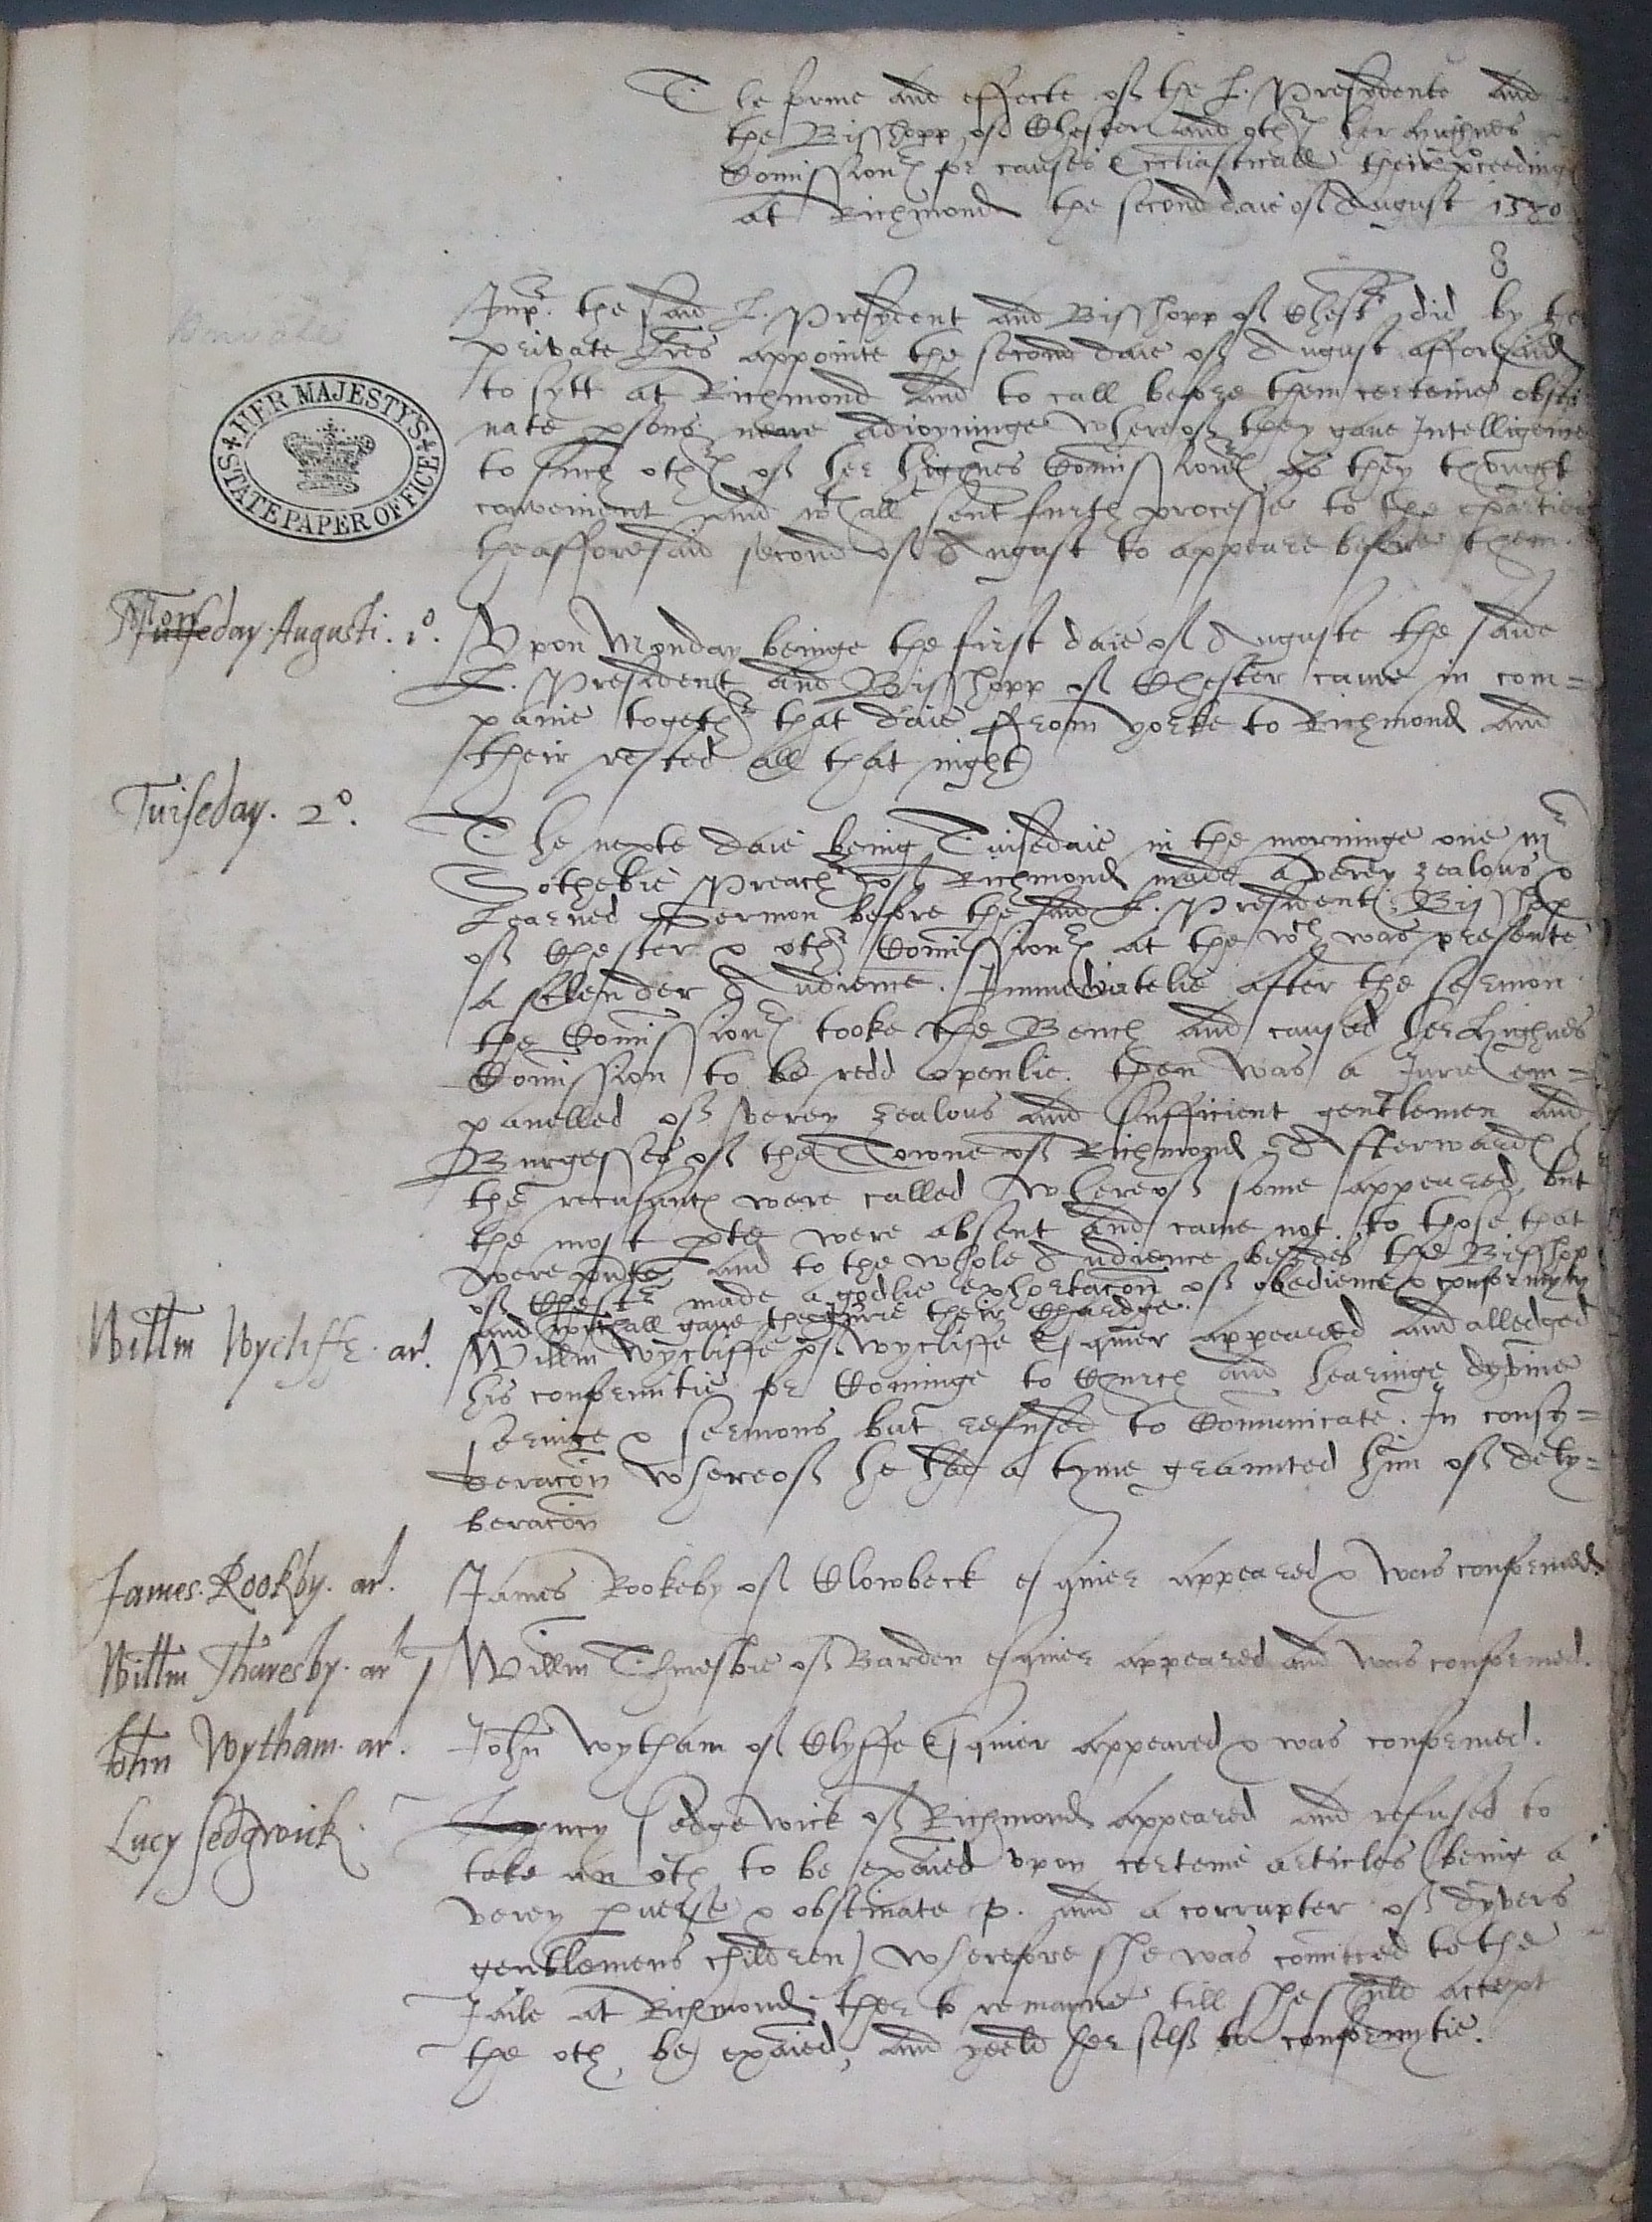 The forme and effecte off the L. Presydente and
the Bisshopp off Chester and othr her highnes
Comissionrs for causes Ecclīasticall their pceedings
at Richmond the second daie off August 1580
8
Inpr. the said L. President and Bisshopp off Chestr did by
private lres appointe the second daie off August afforsaid
to sytt at Richmond and to call before them certeine obsti
nate psons neare adioyninge whereoff they gave Intelligence
to such othr off her highnes Comissionrs as they thought
convenient and wthall sent furth processe to the parties
the afforesaid second off August to appeare before them.
HER MAJESTY'S
STATE PAPER OFFICE
Monday Augusti. 1o.
Vpon Monday beinge the first daie off Auguste the saide
L. President and Bisshopp off Chester came in com=
panie togethr that daie from yorke to Richmond and
their rested all that night
Tuiseday. 2o.
The nexte daie being Tuisedaie in the morninge one mr
Sothebie Preachr off Richmond made a verey zealous &
Learned Sermon before the said L. President Bisshop
off Chester & othr Comissionrs at the wch was presente
a sclender Audience. Immediatelie after the sermon
the Comissionrs tooke the Bench and caused her highnes
Comission to be redd openlie. then was a Iurie em=
panelled off verey zealous and sufficient gentlemen and
Burgesses off the Towne off Richmond Afterwards
the recusants were called Whereoff some appeared, but
the most pte were absent and came not, to those that
were pnte and to the whole Audience besides the Bisshop
off Chestr made a godlie exhortacon off obedience & conformyty
and withall gave the Iurie their Chardge.
Willm Wycliffe. ar.
Willm Wycliffe off Wycliffe Esquier appeared and alledged
his conformitie for Cominge to Church and hearinge dyvine
service & sermons but refused to Comunicate. In consy=
deracon whereoff he had a tyme graunted him off dely=
beracon
James. Rookby. ar.
James Rookeby off Clowbeck esquier appeared & was conformed.
Willm Thoresby. ar
Willm Thuresbie off Barden esquier appeared and was conformed.
John Wytham. ar.
John Wytham off Clyffe Esquier appeared & was conformed.
Lucy Sedgwick.
Lucy Sedgewick off Richmond appeared and refused to
take an oth to be exaied vpon certeine articles (being a
verey pverse & obstinate p. and a corrupter off dyvers
gentlemens children) wherefore she was comitted to the
Iaile at Richmond ther to remayne till she shuld accept
the oth, be exaied, and yeeld her selff to conformytie.